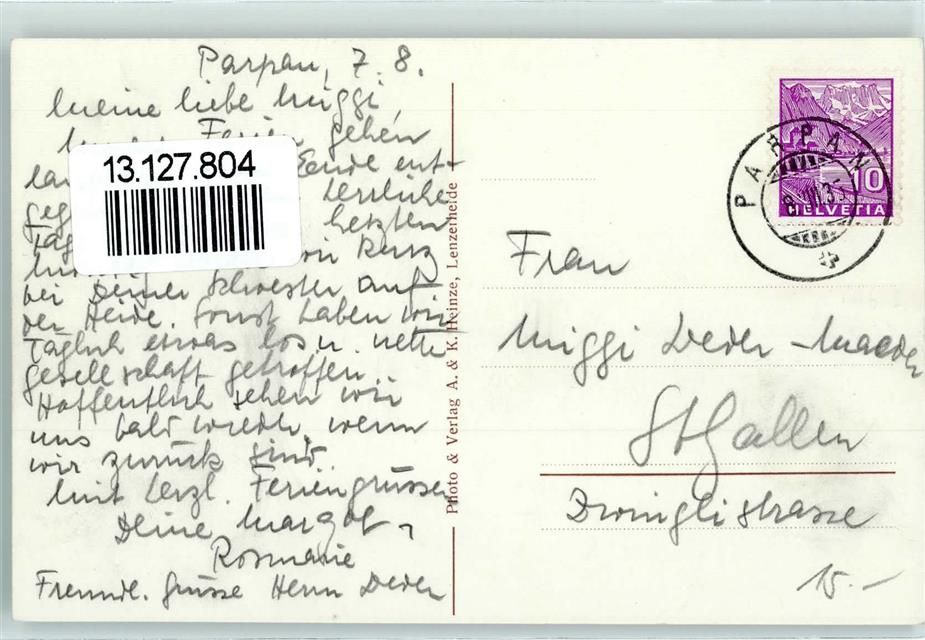 Parpan, 7. 8.
Meine liebe Miggi,
Ferien gehen
Ende ent-
herrliche
letzten
bei Deiner Schwester auf
der Heide. Sonst haben wir
täglich etwas los u. nette
Gesellschaft getroffen.
Hoffentlich sehen wir
uns bald wieder, wenn
wir zurück sind.
Mit herzl. Feriengrüssen
Deine Margot
Rosmarie
Freundl. Grüsse Herrn Deder
13.127.804
Photo & Verlag A. & K. Heinze, Lenzerheide
PARPAN
10
HELVETIA
Frau
Miggi Deder-
St Gallen
Zwinglistrasse
15.-